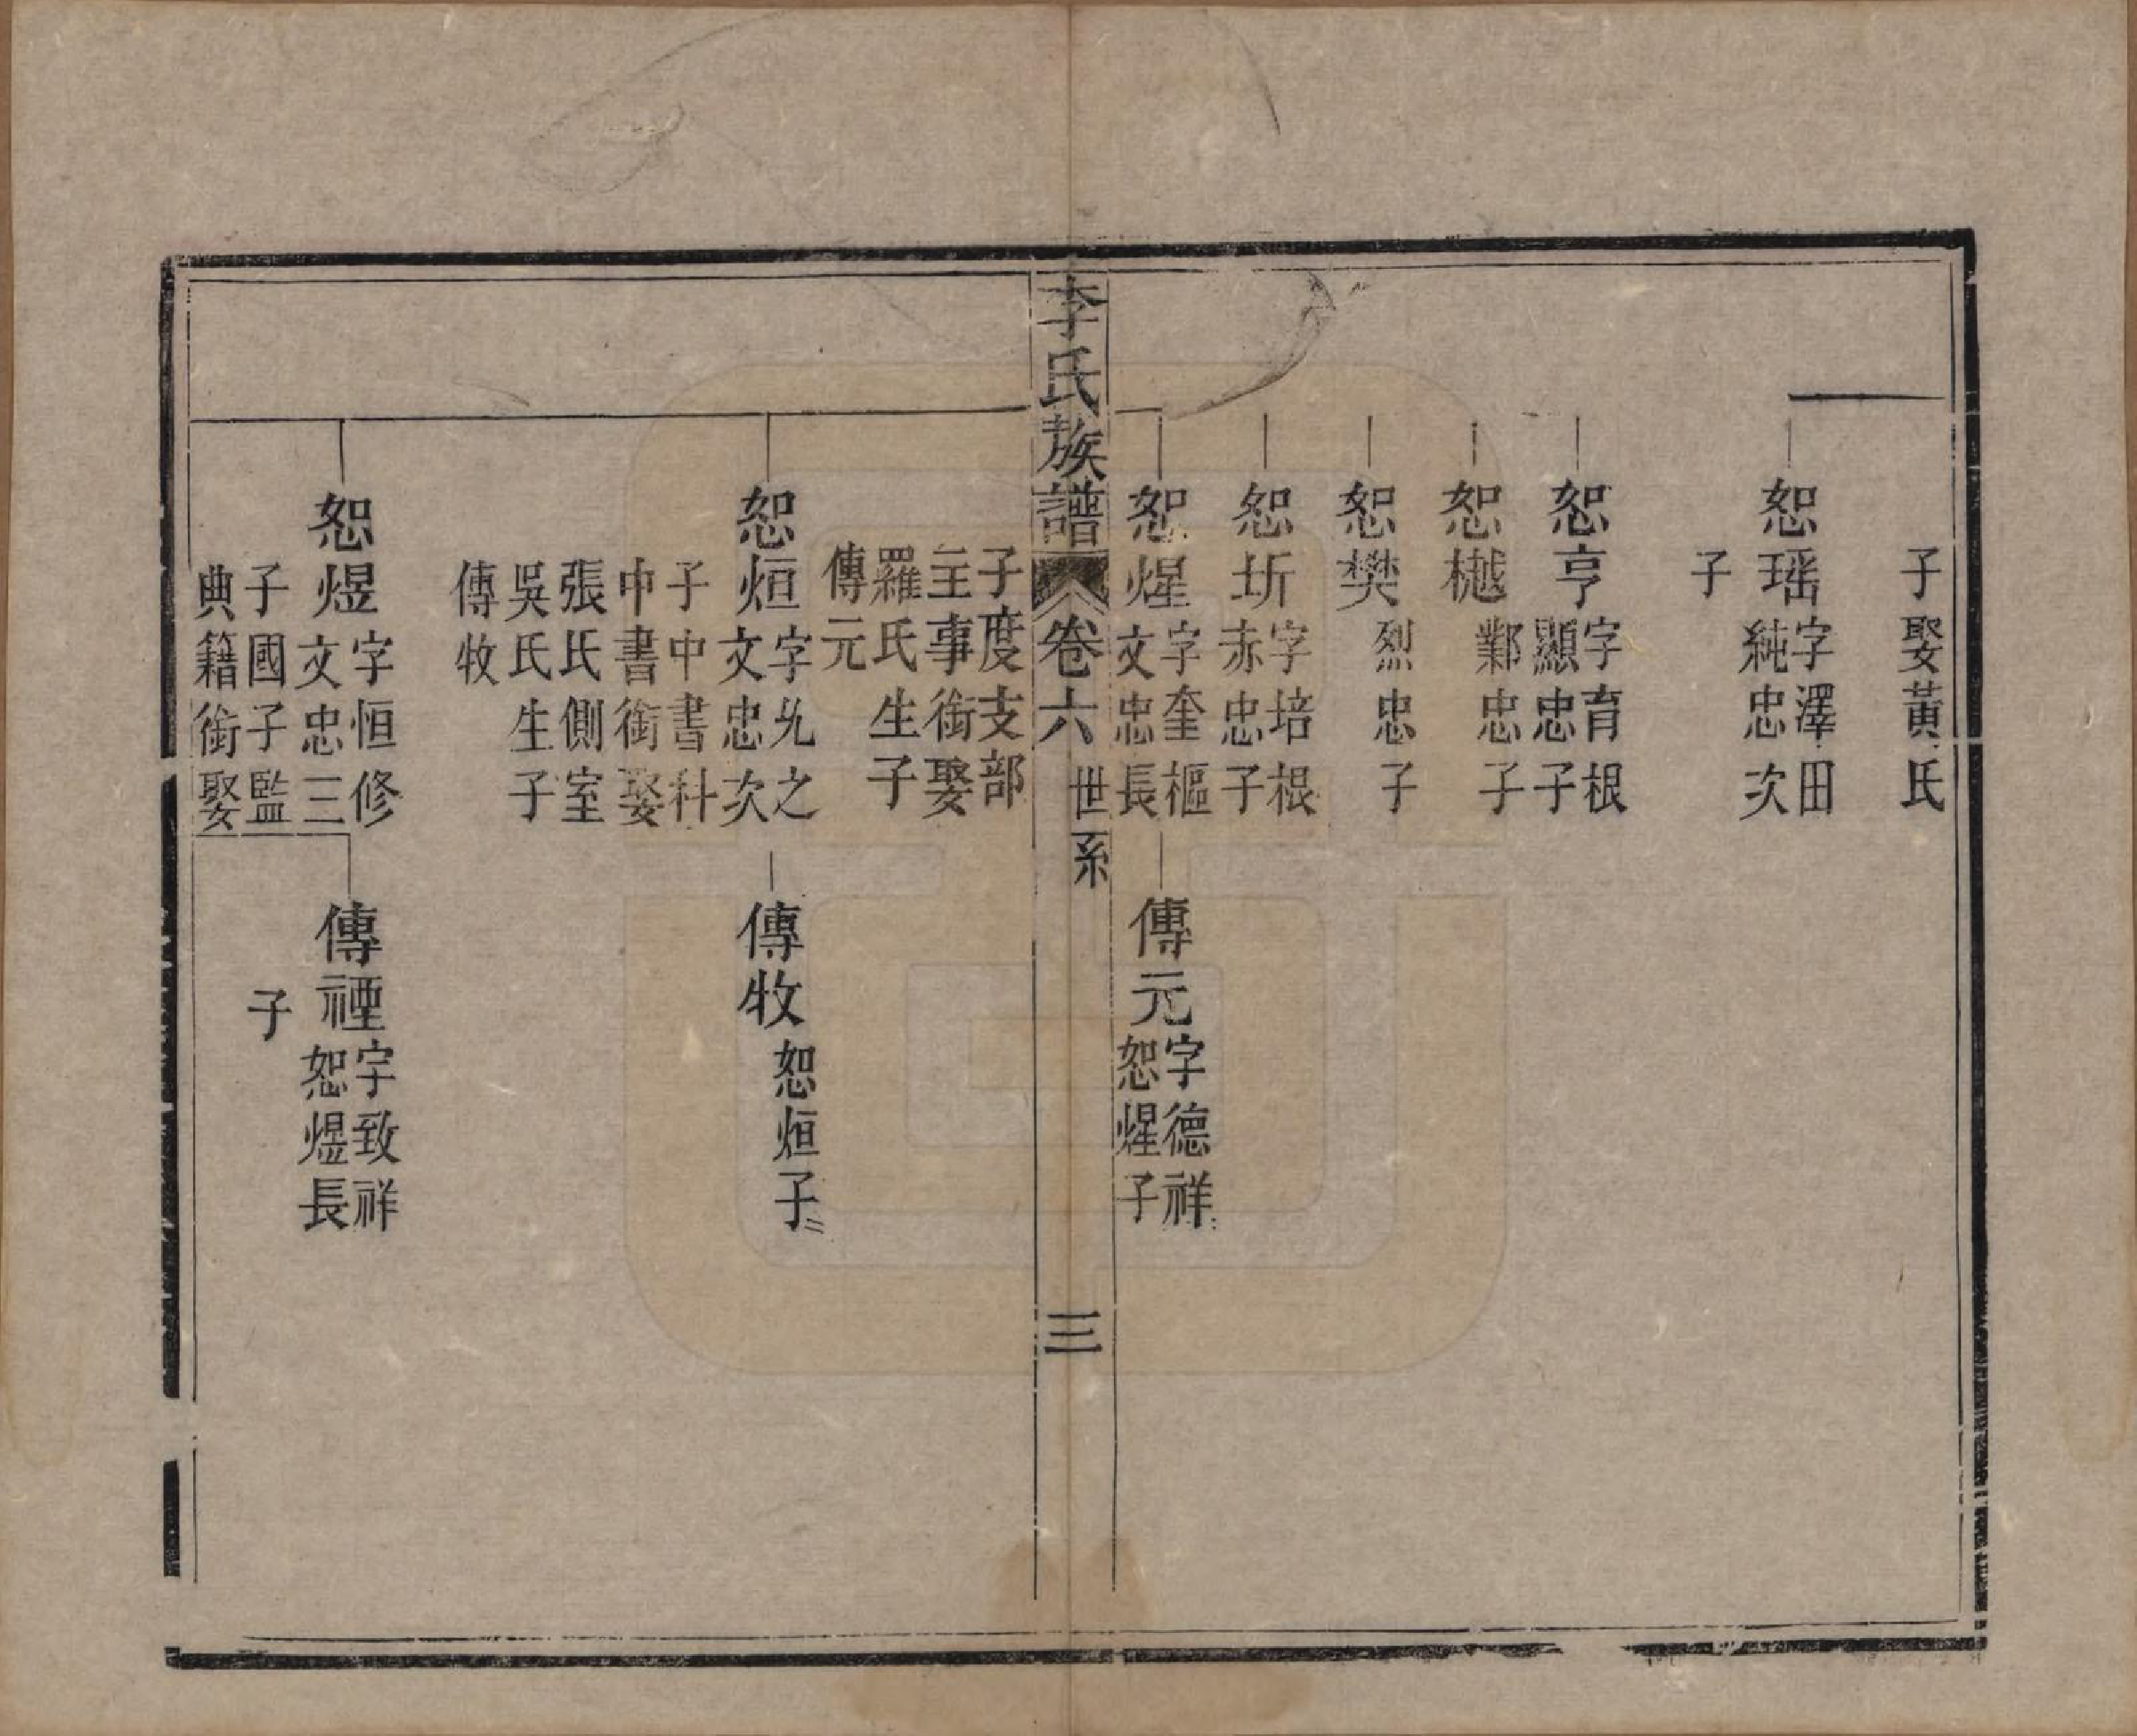 子娶黃氏
恕瑶字澤田
純忠次
子
恕亨字育根
顯忠子
恕樾鄴忠子
恕樊烈忠子
恕圻字培根
赤忠子
恕煋字奎樞
文忠長
子度支部
主事銜娶
羅氏生子
傳元
傳元字德祥
恕煋子
李氏族譜
卷六
世系
三
恕烜字光之
文忠次
子中書科
中書銜娶
張氏側室
吳氏生子
傳牧
傳牧恕烜子
恕煜字恒修
文忠三
子國子監
典籍銜娶
傳禋字致祥
恕煜長
子